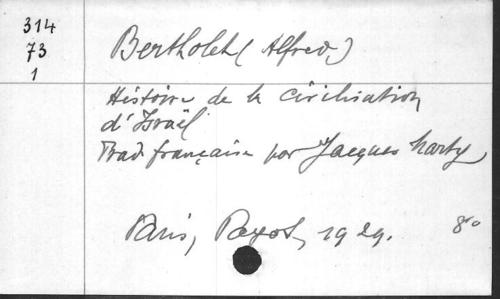 314
73
1
Bertholet (Alfred)
Histoire de la civilisation
d'Israël
Trad française par Jacques Marty
Paris, Payot, 1929. 8°